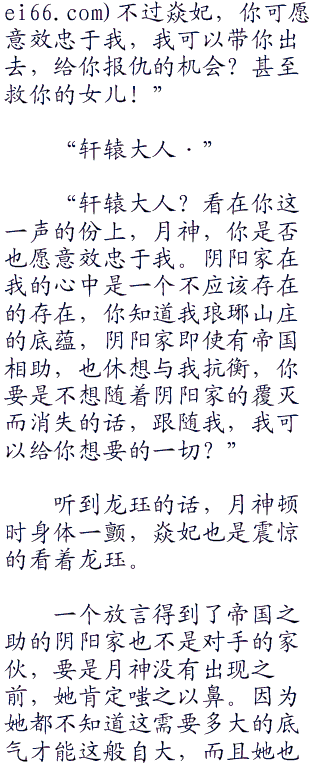 ei66.com)不过焱妃，你可愿
意效忠于我，我可以带你出
去，给你报仇的机会？甚至
救你的女儿！”
“轩辕大人·”
“轩辕大人？看在你这
一声的份上，月神，你是否
也愿意效忠于我。阴阳家在
我的心中是一个不应该存在
的存在，你知道我琅琊山庄
的底蕴，阴阳家即使有帝国
相助，也休想与我抗衡，你
要是不想随着阴阳家的覆灭
而消失的话，跟随我，我可
以给你想要的一切？”
听到龙珏的话，月神顿
时身体一颤，焱妃也是震惊
的看着龙珏。
一个放言得到了帝国之
助的阴阳家也不是对手的家
伙，要是月神没有出现之
前，她肯定嗤之以鼻。因为
她都不知道这需要多大的底
气才能这般自大，而且她也